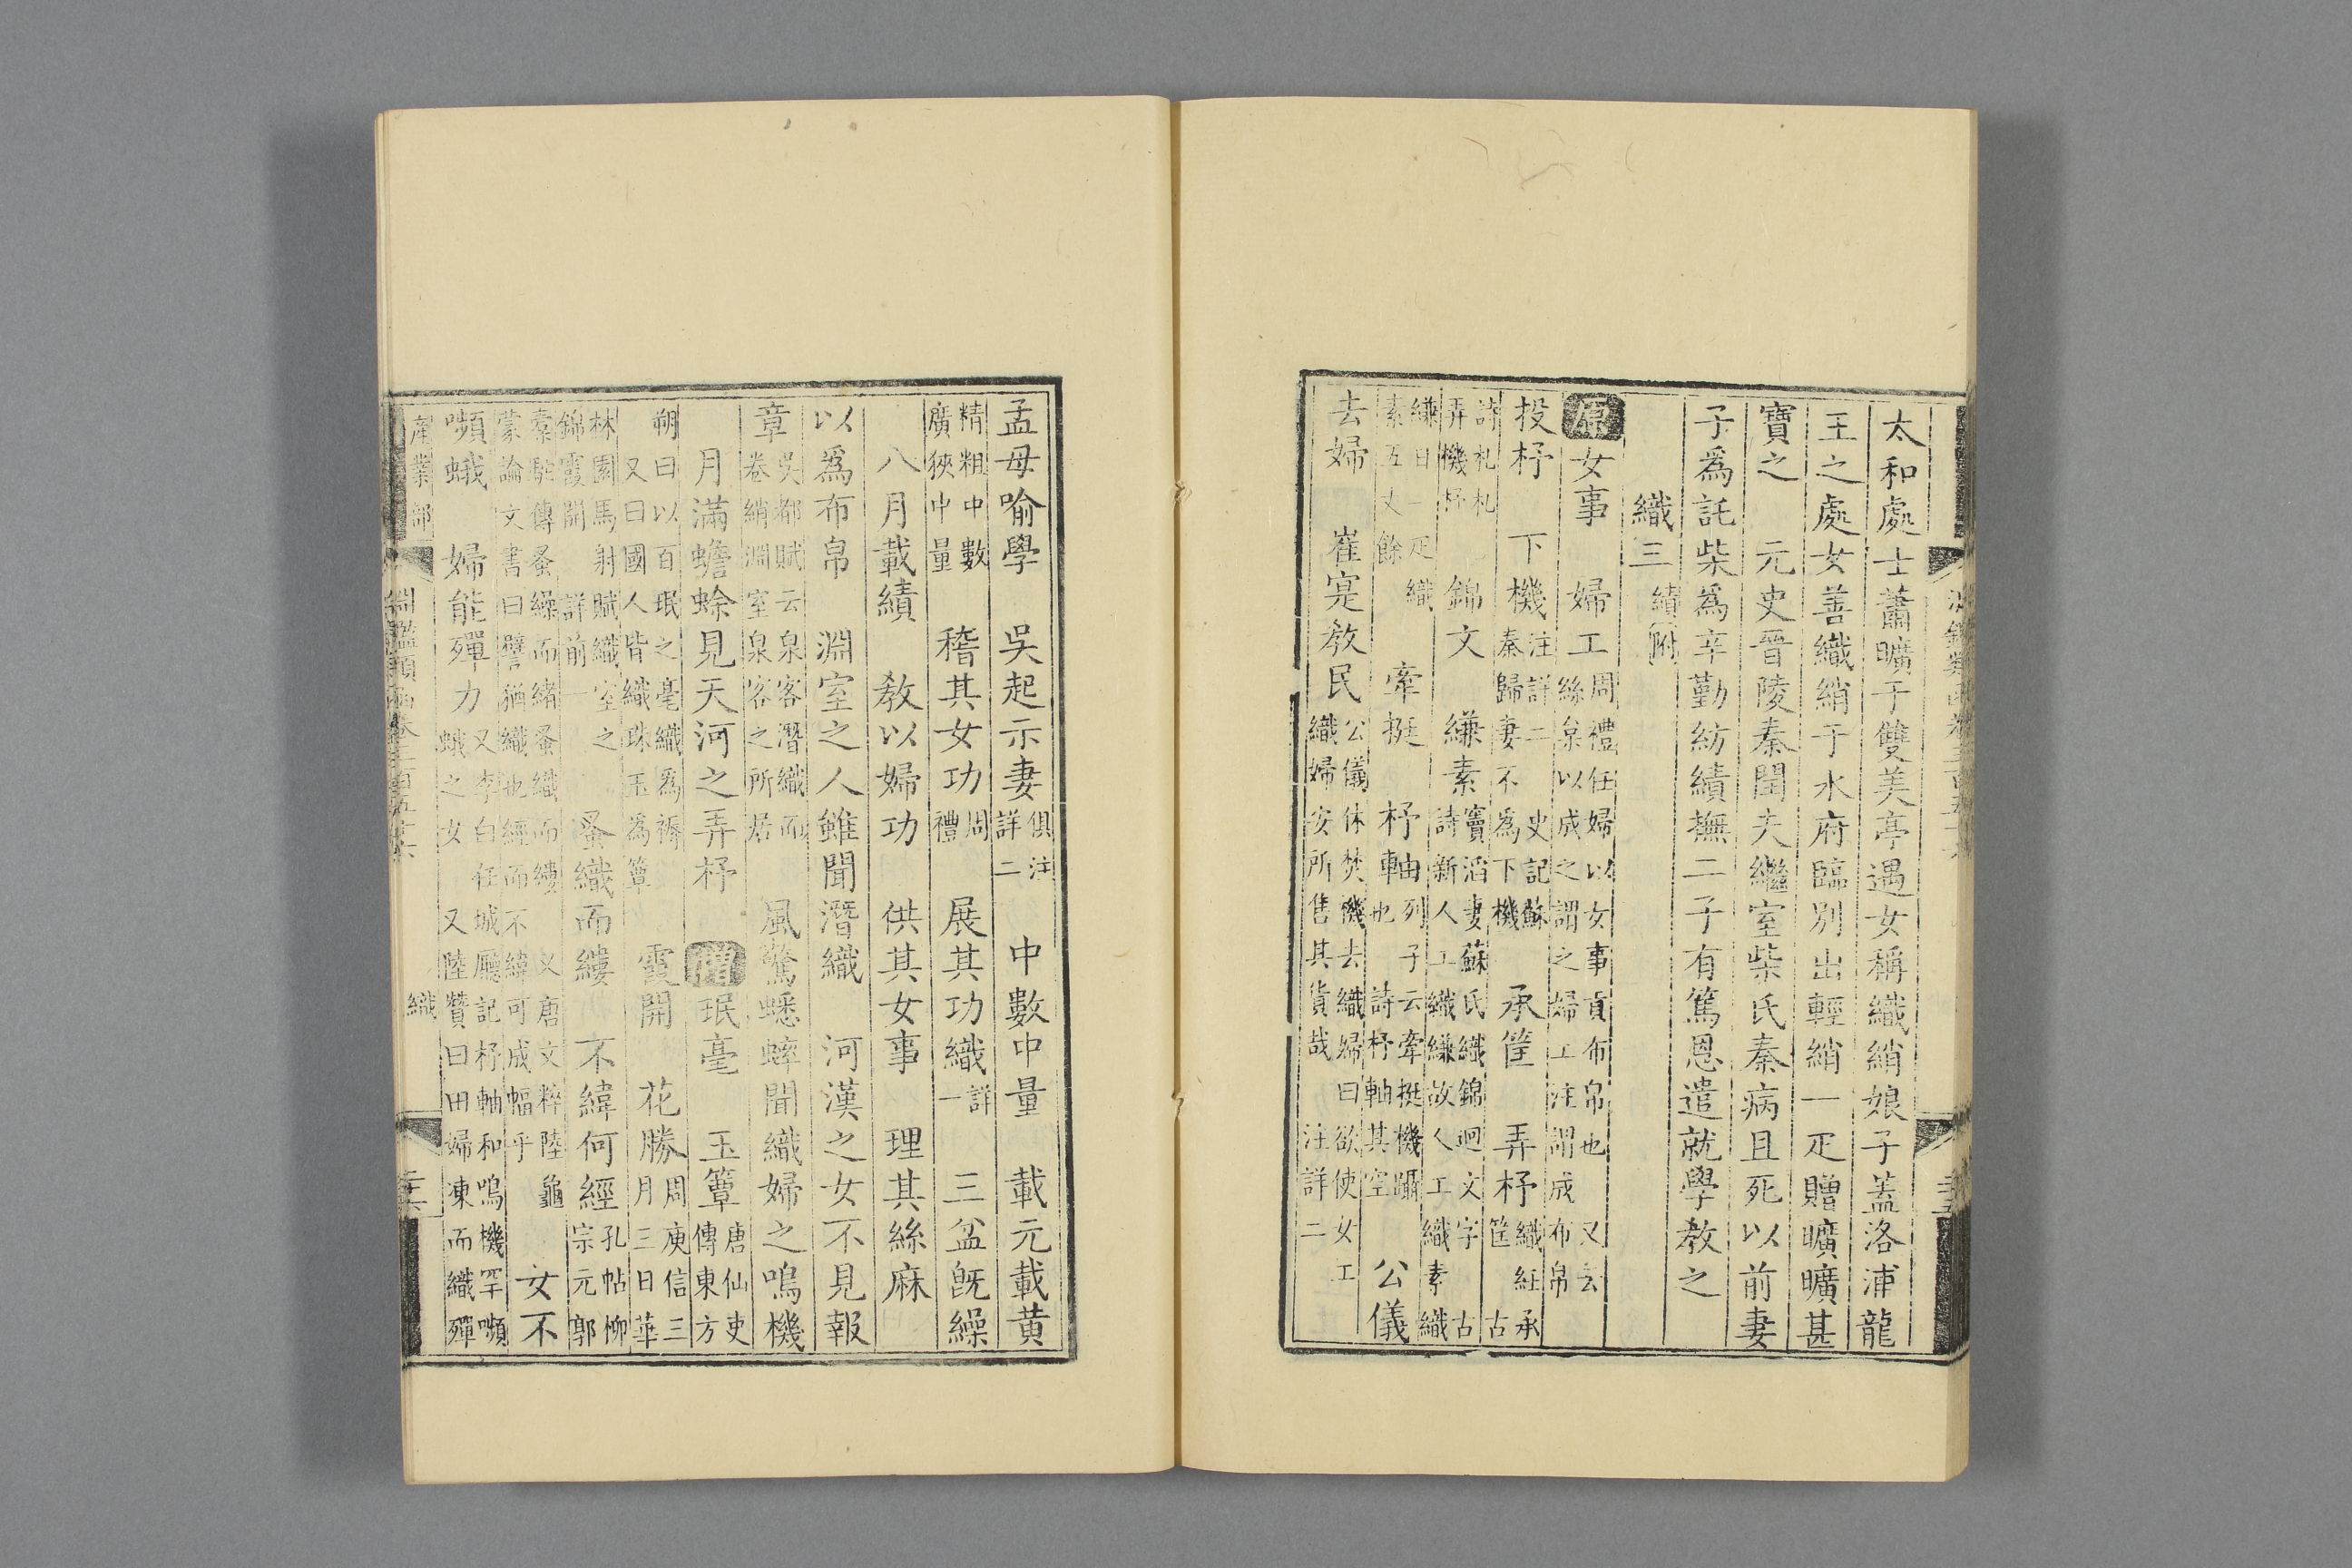 太和處士蕭曠于雙美亭遇女稱織綃娘子蓋洛浦龍
王之處女善織綃于水府臨別出輕綃一疋贈曠曠甚
寶之　元史晉陵秦閏夫繼室柴氏秦病且死以前妻
子爲託柴爲辛勤紡績撫二子有篤恩遣就學教之
織三 績附
原女事　婦工 周禮任婦以女事貢布帛也　又云絲枲以成之謂之婦工注謂成布帛
投杼　下機 注詳二　史記蘇秦歸妻不爲下機　承筐　弄杼 織紝承筐　古
詩札札弄機杼　錦文　縑素 竇滔妻蘇氏織錦迴文字　古詩新人工織縑故人工織素織
縑日一疋織素五丈餘　牽挺　杼軸 列子云牽挺機躡也　詩杼軸其空　公儀
去婦　崔寔教民 公儀休焚機去織婦曰欲使女工織婦安所售其貨哉　注詳二
孟母喻學　吳起示妻 俱注詳二　中數中量　載元載黃
精粗中數廣狹中量　稽其女功 周禮　展其功織 詳一　三盆既繰
八月載績　教以婦功　供其女事　理其絲麻
以爲布帛　淵室之人雖聞潛織　河漢之女不見報
章 吳都賦云泉客潛織而卷綃淵室泉客之所居　風驚蟋蟀聞織婦之鳴機
月滿蟾蜍見天河之弄杼　增珉毫　玉簟 唐仙史傳東方
朔曰以百珉之毫織爲褥又曰國人皆織珠玉爲簟　霞開　花勝 周庾信三月三日華
林園馬射賦織室之錦霞開　詳前一　蚤織而縷　不緯何經 孔帖柳宗元郭
橐駝傳蚤繰而緒蚤織而縷　又唐文粹陸龜蒙論文書曰譬猶織也經而不緯可成幅乎　女不
嚬蛾　婦能殫力 又李白任城廳記杼軸和鳴機罕嚬蛾之女　又陸贄曰田婦凍而織殫
産業部　淵鑑類函卷三百五十六　織